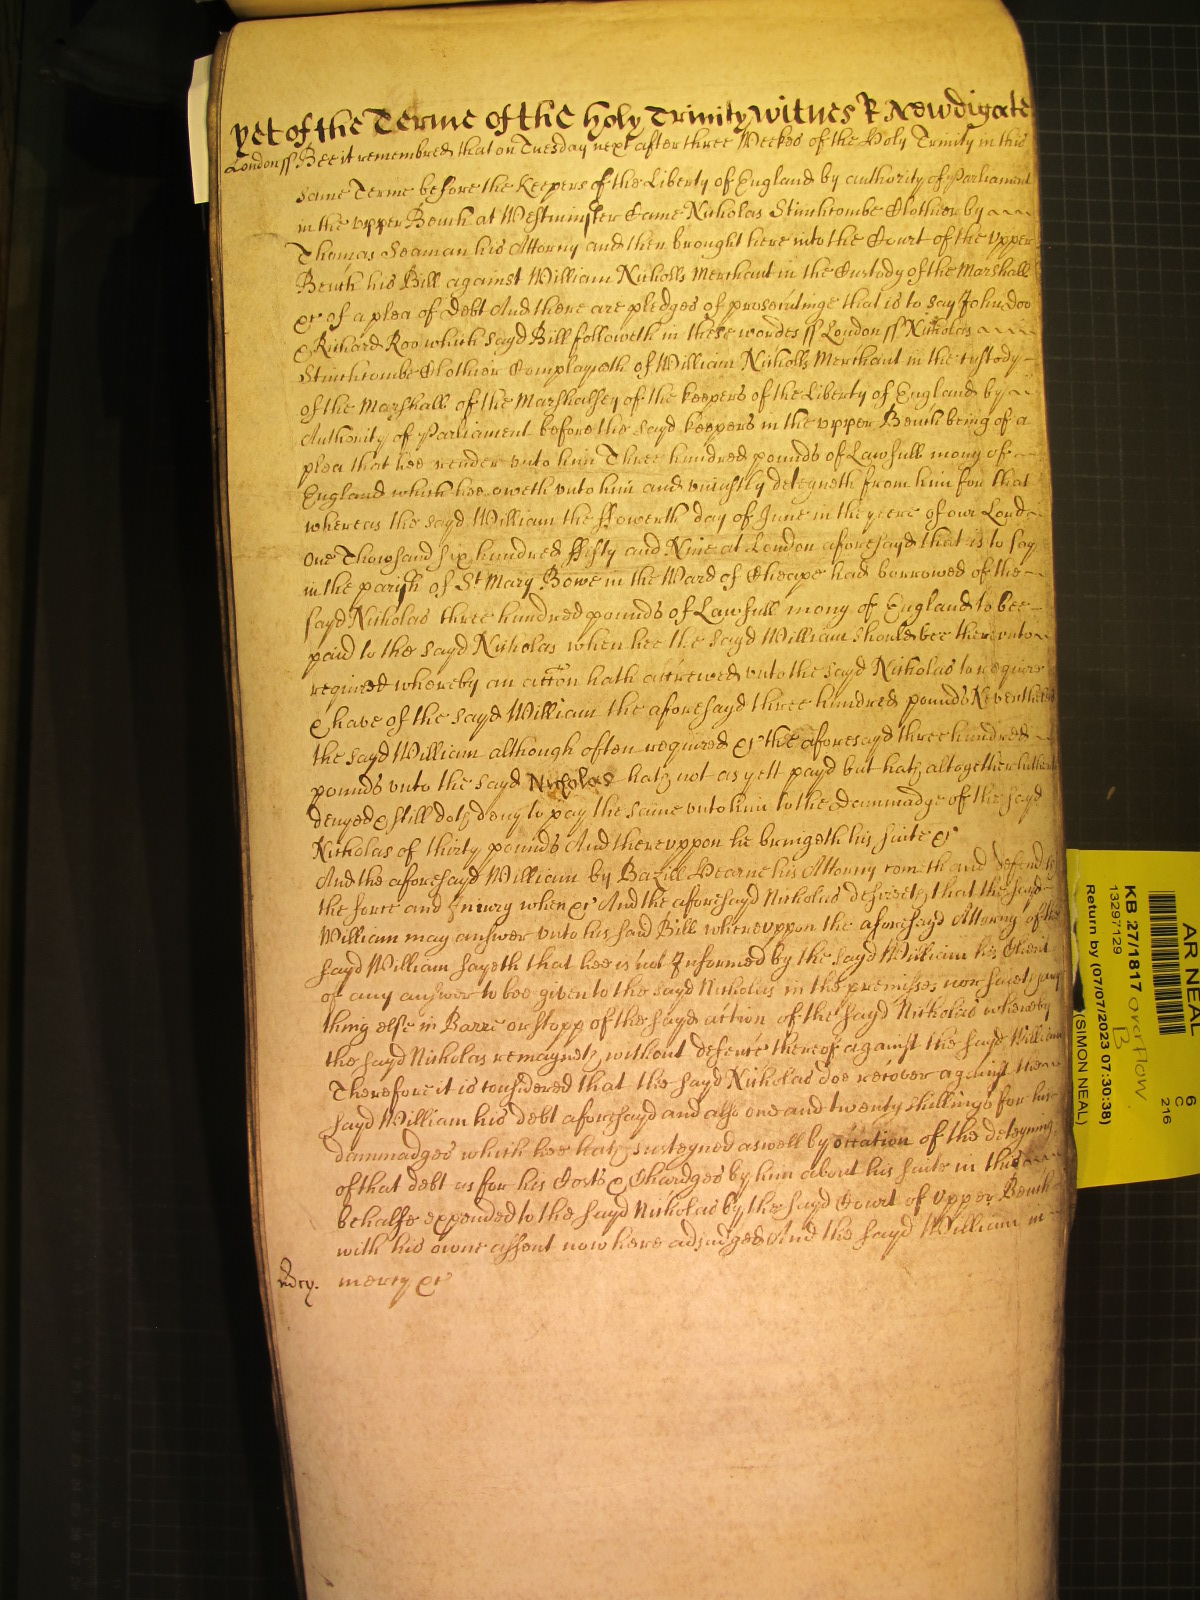 yet of the Terme of the holy Trinity Witnes R Newdigate
London ss Bee it remembred that on Tuesday next after three Weekes of the Holy Trinity in this
same Terme before the Keepers of the Liberty of England by authority of Parliament
in the upper Bench at Westminster Came Nicholas Stinchcombe Clothier by
Thomas Seaman his Attorny and then brought here into the Court of the upper
Bench his Bill against William Nicholls Merchant in the Custody of the Marshall
&c of a plea of Debt And there are pledges of prosecutinge that is to say John doo
& Richard Roo which sayd Bill followeth in these wordes ss London ss Nicholas
Stinchcombe Clothier Complayneth of William Nicholls Merchant in the custody
of the Marshall of the Marshalsey of the keepers of the Liberty of England by
Authority of Parliament before the sayd keepers in the upper Bench being of a
plea that hee render unto him Three hundred pounds of Lawfull mony of
England which hee oweth unto him and uniustly deteyneth from him for that
whereas the sayd William the ffowerth day of June in the yeere of our Lord
One Thowsand six hundred ffifty and Nine at London aforesayd that is to say
in the parish of St Mary Bowe in the Ward of Cheape had borrowed of the
sayd Nicholas three hundred pounds of Lawfull mony of England to bee
paid to the sayd Nicholas when hee the sayd William should bee thereunto
required whereby an accon hath accrewed unto the sayd Nicholas to require
& have of the sayd William the aforesayd three hundred pounds Neverthelesse
the sayd William although often required &c the aforesayd three hundred
pounds unto the sayd Nicholas hath not as yett payd but hath altogether hitherto
denyed & still doth deny to pay the same unto him to the Dammadge of the sayd
Nicholas of thirty pounds And thereuppon he bringeth his suite &c
And the aforesayd William by Bazill Hearne his Attorny cometh and defends
the force and Iniury when &c And the aforesayd Nicholas desireth that the sayd
William may answer unto his said Bill whereuppon the aforesayd Attorny of the
sayd William sayeth that hee is not Informed by the sayd William his Client
of any answer to bee given to the sayd Nicholas in the premisses nor saieth any
thing else in Barre or stopp of the sayd action of the sayd Nicholas whereby
the sayd Nicholas remayneth without defence thereof against the sayd William
Therefore it is considered that the sayd Nicholas doe recover against the
sayd William his debt aforesayd and also one and twenty shillings for his
dammadges which hee hath susteyned aswell by occation of the deteyning
of that debt as for his Costs & Chardges by him about his suite in this
behalfe expended to the sayd Nicholas by the sayd Court of upper Bench
with his owne assent now here adjudged And the sayd William in
mercy &c
AR NEAL
6
C
216
KB 27/1817 overflow
B
13297129
Return by (07/07/2023 07:30:38)
(SIMON NEAL)